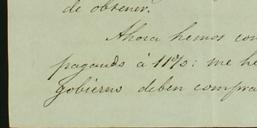 de obtener.
Ahora hemos con
pagando à 11%: me he
gobierno deben compra